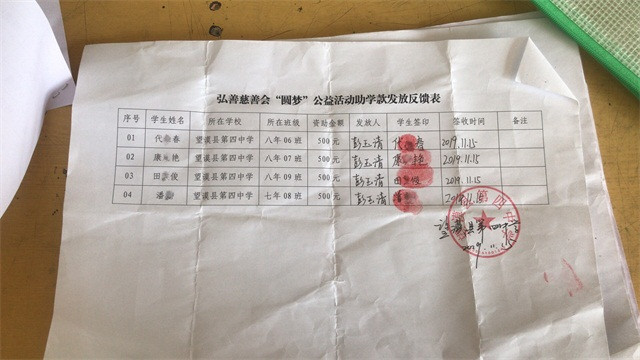 弘善慈善会“圆梦”公益活动助学款发放反馈表
序号 学生姓名 所在学校 所在班级 资助金额 发放人 学生签印 签收时间 备注
01 代 春 望谟县第四中学 八年06班 500元 彭玉清 代 春 2019.11.15
02 康 艳 望谟县第四中学 八年07班 500元 彭玉清 康 艳 2019.11.15
03 田 俊 望谟县第四中学 八年09班 500元 彭玉清 田 俊 2019.11.15
04 潘 望谟县第四中学 七年08班 500元 彭玉清 2019.11.15
望谟县第四中学
2019.11.15